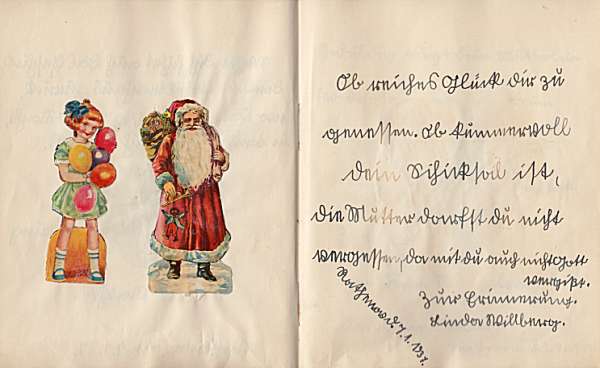 Ob reiches Glück dir zu
genessen. Ob kummervoll
dein Schicksal ist,
die Mutter darfst du nicht
vergessen, da mit du auch nicht Gott
vergißt.
Zur Erinnerung.
Linda Willberg.
Rathenow d. 7.1.1937.